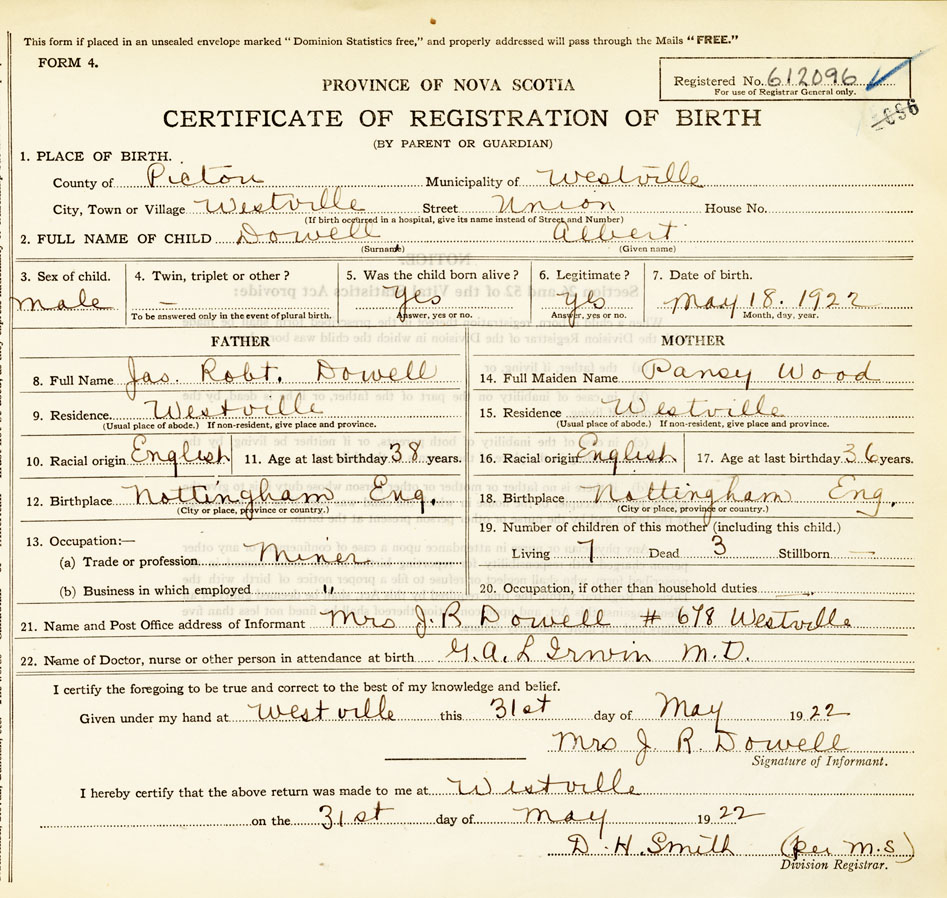 This form if placed in an unsealed envelope marked "Dominion Statistics free," and properly addressed will pass through the Mails "FREE."
FORM 4.
Registered No. 612096
For use of Registrar General only.
PROVINCE OF NOVA SCOTIA
CERTIFICATE OF REGISTRATION OF BIRTH
(BY PARENT OR GUARDIAN)
1. PLACE OF BIRTH.
County of Pictou Municipality of Westville
City, Town or Village Westville Street Union House No.
(If birth occurred in a hospital, give its name instead of Street and Number)
2. FULL NAME OF CHILD Dowell Albert
(Surname) (Given name)
3. Sex of child. 4. Twin, triplet or other? 5. Was the child born alive? 6. Legitimate? 7. Date of birth.
male — Yes Yes May 18. 1922
To be answered only in the event of plural birth. Answer, yes or no. Answer, yes or no. Month, day, year.
FATHER MOTHER
8. Full Name Jas. Robt. Dowell 14. Full Maiden Name Pansy Wood
9. Residence. Westville 15. Residence Westville
(Usual place of abode.) If non-resident, give place and province. (Usual place of abode.) If non-resident, give place and province.
10. Racial origin English 11. Age at last birthday 38 years. 16. Racial origin English 17. Age at last birthday 36 years.
12. Birthplace Nottingham Eng. 18. Birthplace Nottingham Eng.
(City or place, province or country.) (City or place, province or country.)
19. Number of children of this mother (including this child.)
13. Occupation:—
(a) Trade or profession Miner Living 7 Dead 3 Stillborn —
(b) Business in which employed " 20. Occupation, if other than household duties
21. Name and Post Office address of Informant Mrs J. R Dowell # 678 Westville
22. Name of Doctor, nurse or other person in attendance at birth G. A. L Irwin M.D.
I certify the foregoing to be true and correct to the best of my knowledge and belief.
Given under my hand at Westville this 31st day of May 1922
Mrs J. R. Dowell
Signature of Informant.
I hereby certify that the above return was made to me at Westville
on the 31st day of May 1922
D. H. Smith (per M.S)
Division Registrar.